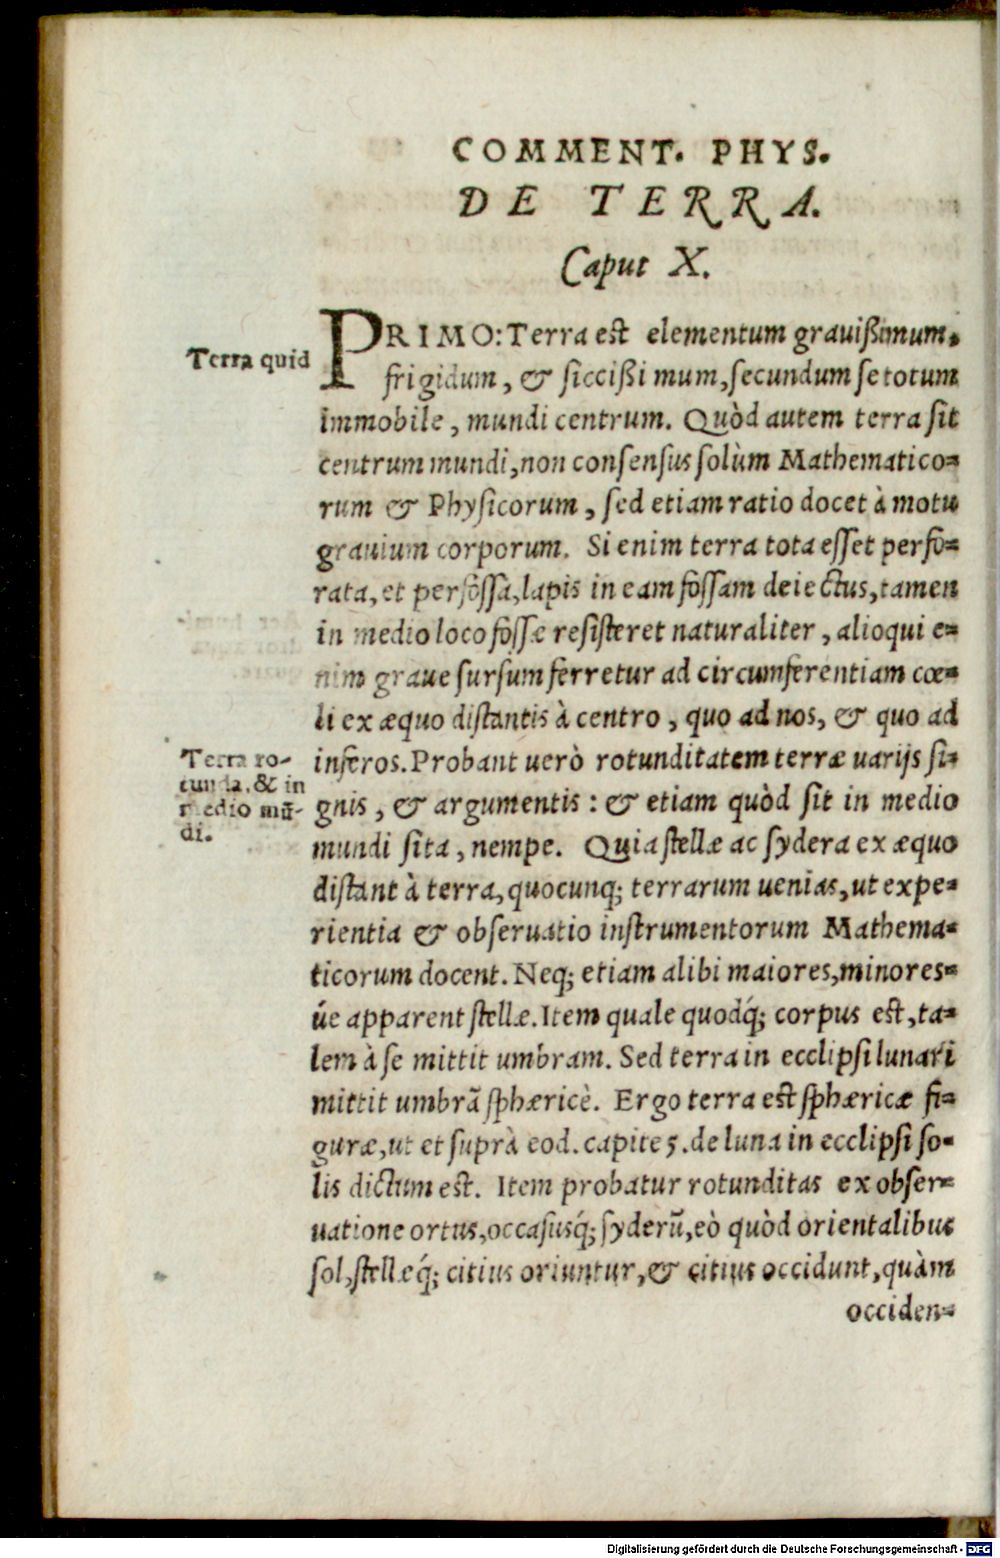 COMMENT. PHYS.
DE TERRA.
Caput X.
Terra quid
PRIMO: Terra est elementum grauißimum,
frigidum, & siccißimum, secundum se totum
immobile, mundi centrum. Quòd autem terra sit
centrum mundi, non consensus solùm Mathematico=
rum & Physicorum, sed etiam ratio docet à motu
grauium corporum. Si enim terra tota esset perfo=
rata, et perfossa, lapis in eam fossam deiectus, tamen
in medio loco fossæ resisteret naturaliter, alioqui e=
nim graue sursum ferretur ad circumferentiam cœ=
li ex æquo distantis à centro, quo ad nos, & quo ad
inferos. Probant uerò rotunditatem terræ uarijs si=
gnis, & argumentis: & etiam quòd sit in medio
mundi sita, nempe. Quia stellæ ac sydera ex æquo
distant à terra, quocunq; terrarum uenias, ut expe=
rientia & obseruatio instrumentorum Mathema=
ticorum docent. Neq; etiam alibi maiores, minores=
úe apparent stellæ. Item quale quodq́; corpus est, ta=
lem à se mittit umbram. Sed terra in ecclipsi lunari
mittit umbrã sphæricè. Ergo terra est sphæricæ fi=
guræ, ut et suprà eod. capite 5. de luna in ecclipsi so=
lis dictum est. Item probatur rotunditas ex obser=
uatione ortus, occasusq́; syderũ, eò quòd orientalibus
sol, stellæq́; citius oriuntur, & citius occidunt, quàm
occiden=
Terra ro-
tunda, & in
medio mũ-
di.
Digitalisierung gefördert durch die Deutsche Forschungsgemeinschaft - DFG